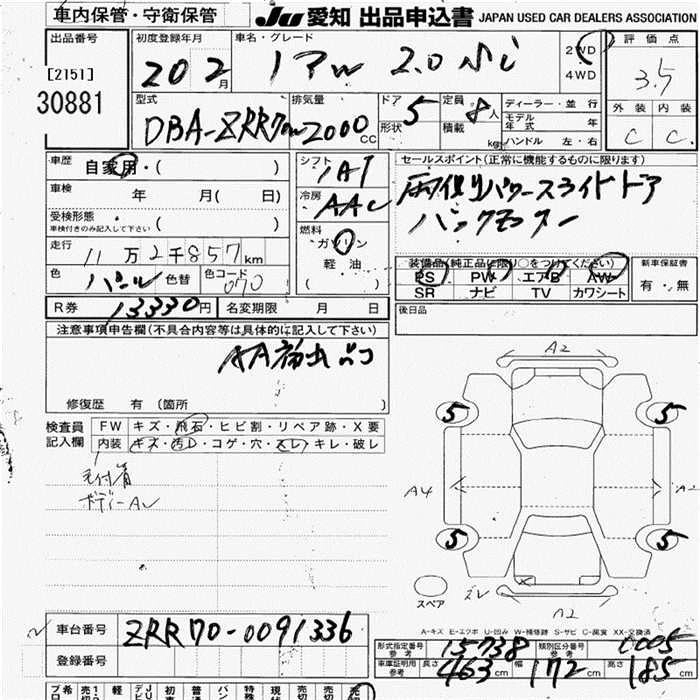 車内保管・守衛保管 Ju 愛知 出品申込書 JAPAN USED CAR DEALERS ASSOCIATION
出品番号 初度登録年月 車名・グレード 2WD 評価点
[2151] 20 2月 ノアW 2.0 Si 4WD 3.5
30881 型式 排気量 ドア 定員 ディーラー・並行 外装 内装
DBA-ZRR70W 2000CC 5 8人 モデル年式 年 C C
形状 積載 kg ハンドル 左・右
車歴 自家用・( ) シフト IAT セールスポイント(正常に機能するものに限ります)
車検 年 月( 日) 冷房 AAC 両側パワースライドドア
受検形態 ( ) バックモニター
車検付きのみ記入して下さい 燃料 ガソリン
走行 11万2千857km 軽油 装備品(純正品に限り○をつけてください) 新車保証書
色 パール 色替 色コード 070 ( ) PS PW エアB AW 有・無
SR ナビ TV カワシート
R券 13330円 名変期限 月 日 後日品
注意事項申告欄(不具合内容等は具体的に記入して下さい)
修復歴 有 (箇所 )
検査員 FW キズ・飛石・ヒビ割・リペア跡・X要
記入欄 内装 キズ・汚レ・コゲ・穴・スレ・キレ・破レ
ボディーAU
A2
5 5
A4 A2
5 5
スペア スレ A2
A-キズ E-エクボ U-凹み W-補修跡 S-サビ C-腐食 XX-交換済
車台番号 ZRR70-0091336
形式指定番号 参考 15738 類別区分番号 参考 1005
登録番号 車庫証明用 参考 長さ 463cm 幅 172cm 高さ 185cm